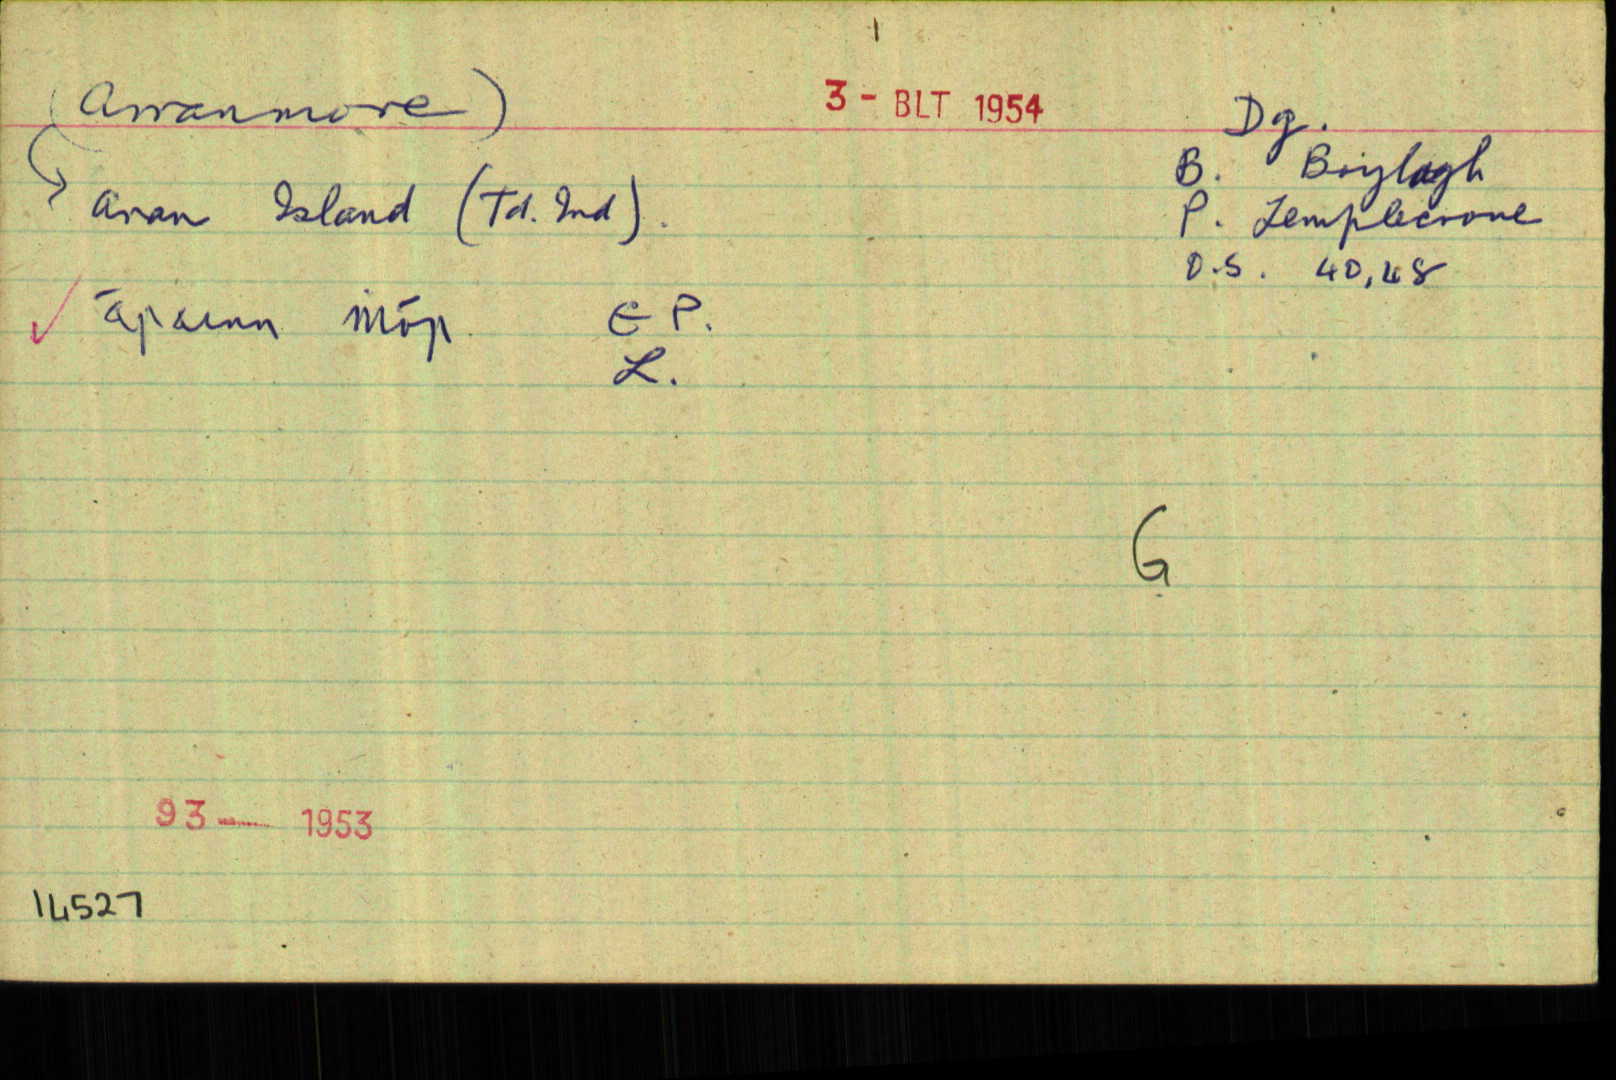 (Arranmore)
3 - BLT 1954
Dg.
B. Boylagh
Aran Island (Td. Ind).
P. Templecrone
O.S. 40,48
Árainn Mór E P.
L.
G
93 1953
14527